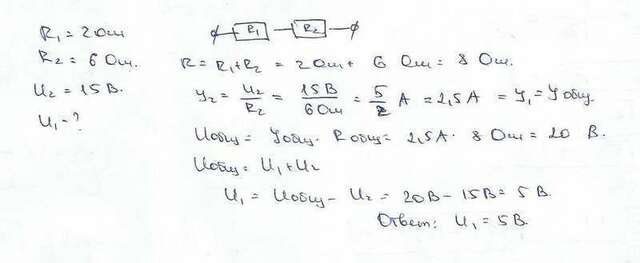 R₁ = 2 Ом
R₂ = 6 Ом.
U₂ = 15 В.
U₁ - ?
R₁ R₂
R = R₁+R₂ = 2 Ом + 6 Ом = 8 Ом.
У₂ = U₂/R₂ = 15 В/6 Ом = 5/2 А = 2,5 А = У₁ = У общ.
Uобщ = Уобщ · R общ = 2,5 А · 8 Ом = 20 В.
Uобщ = U₁ + U₂
U₁ = Uобщ - U₂ = 20 В - 15 В = 5 В.
Ответ: U₁ = 5 В.